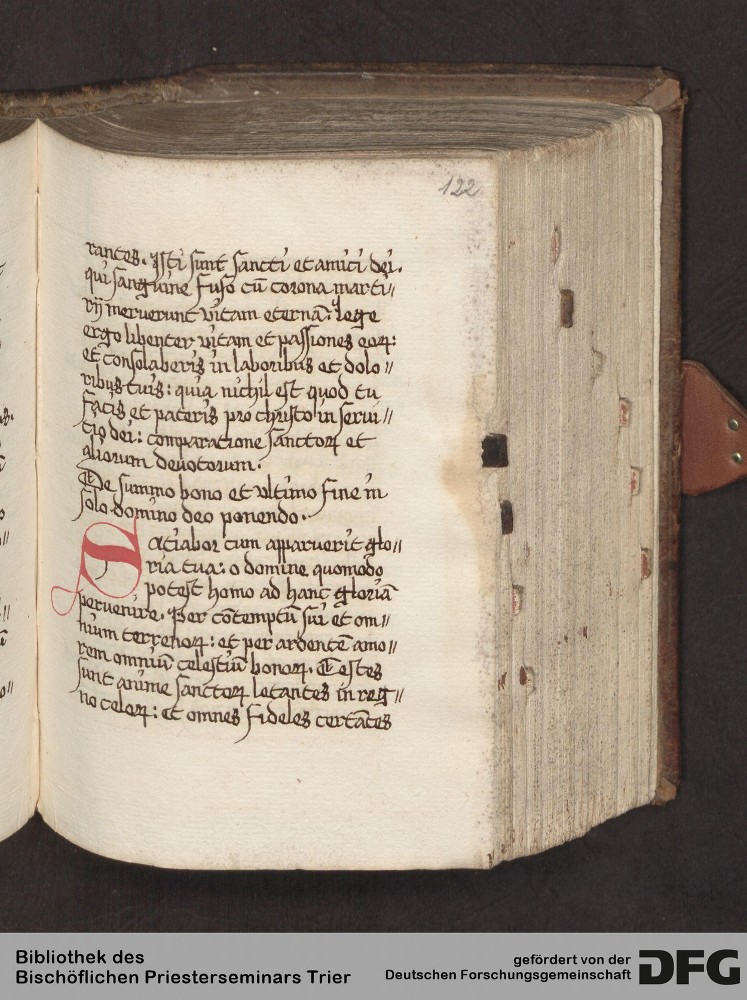 122
rantes. Isti sunt sancti et amici dei.
qui sanguine fuso cū corona marti//
rij meruerunt vitam eternā: lege
ergo libenter vitam et passiones eoꝝ:
et consolaberis in laboribus et dolo//
ribus tuis: quia nichil est quod tu
facis et pateris pro christo in serui//
tio dei: comparatione sanctoꝝ et
aliorum deuotorum.
De summo bono et vltimo fine in
solo domino deo ponendo.
Satiabor cum apparuerit glo//
ria tua: o domine quomodo
potest homo ad hanc gloriā
peruenire. Per cōtemptū sui et om//
nium terrenoꝝ: et per ardentē amo//
rem omniū celestiū bonoꝝ. Testes
sunt anime sanctoꝝ letantes in reg//
no celoꝝ: et omnes fideles certātes
Bibliothek des
Bischöflichen Priesterseminars Trier
gefördert von der
Deutschen Forschungsgemeinschaft
DFG